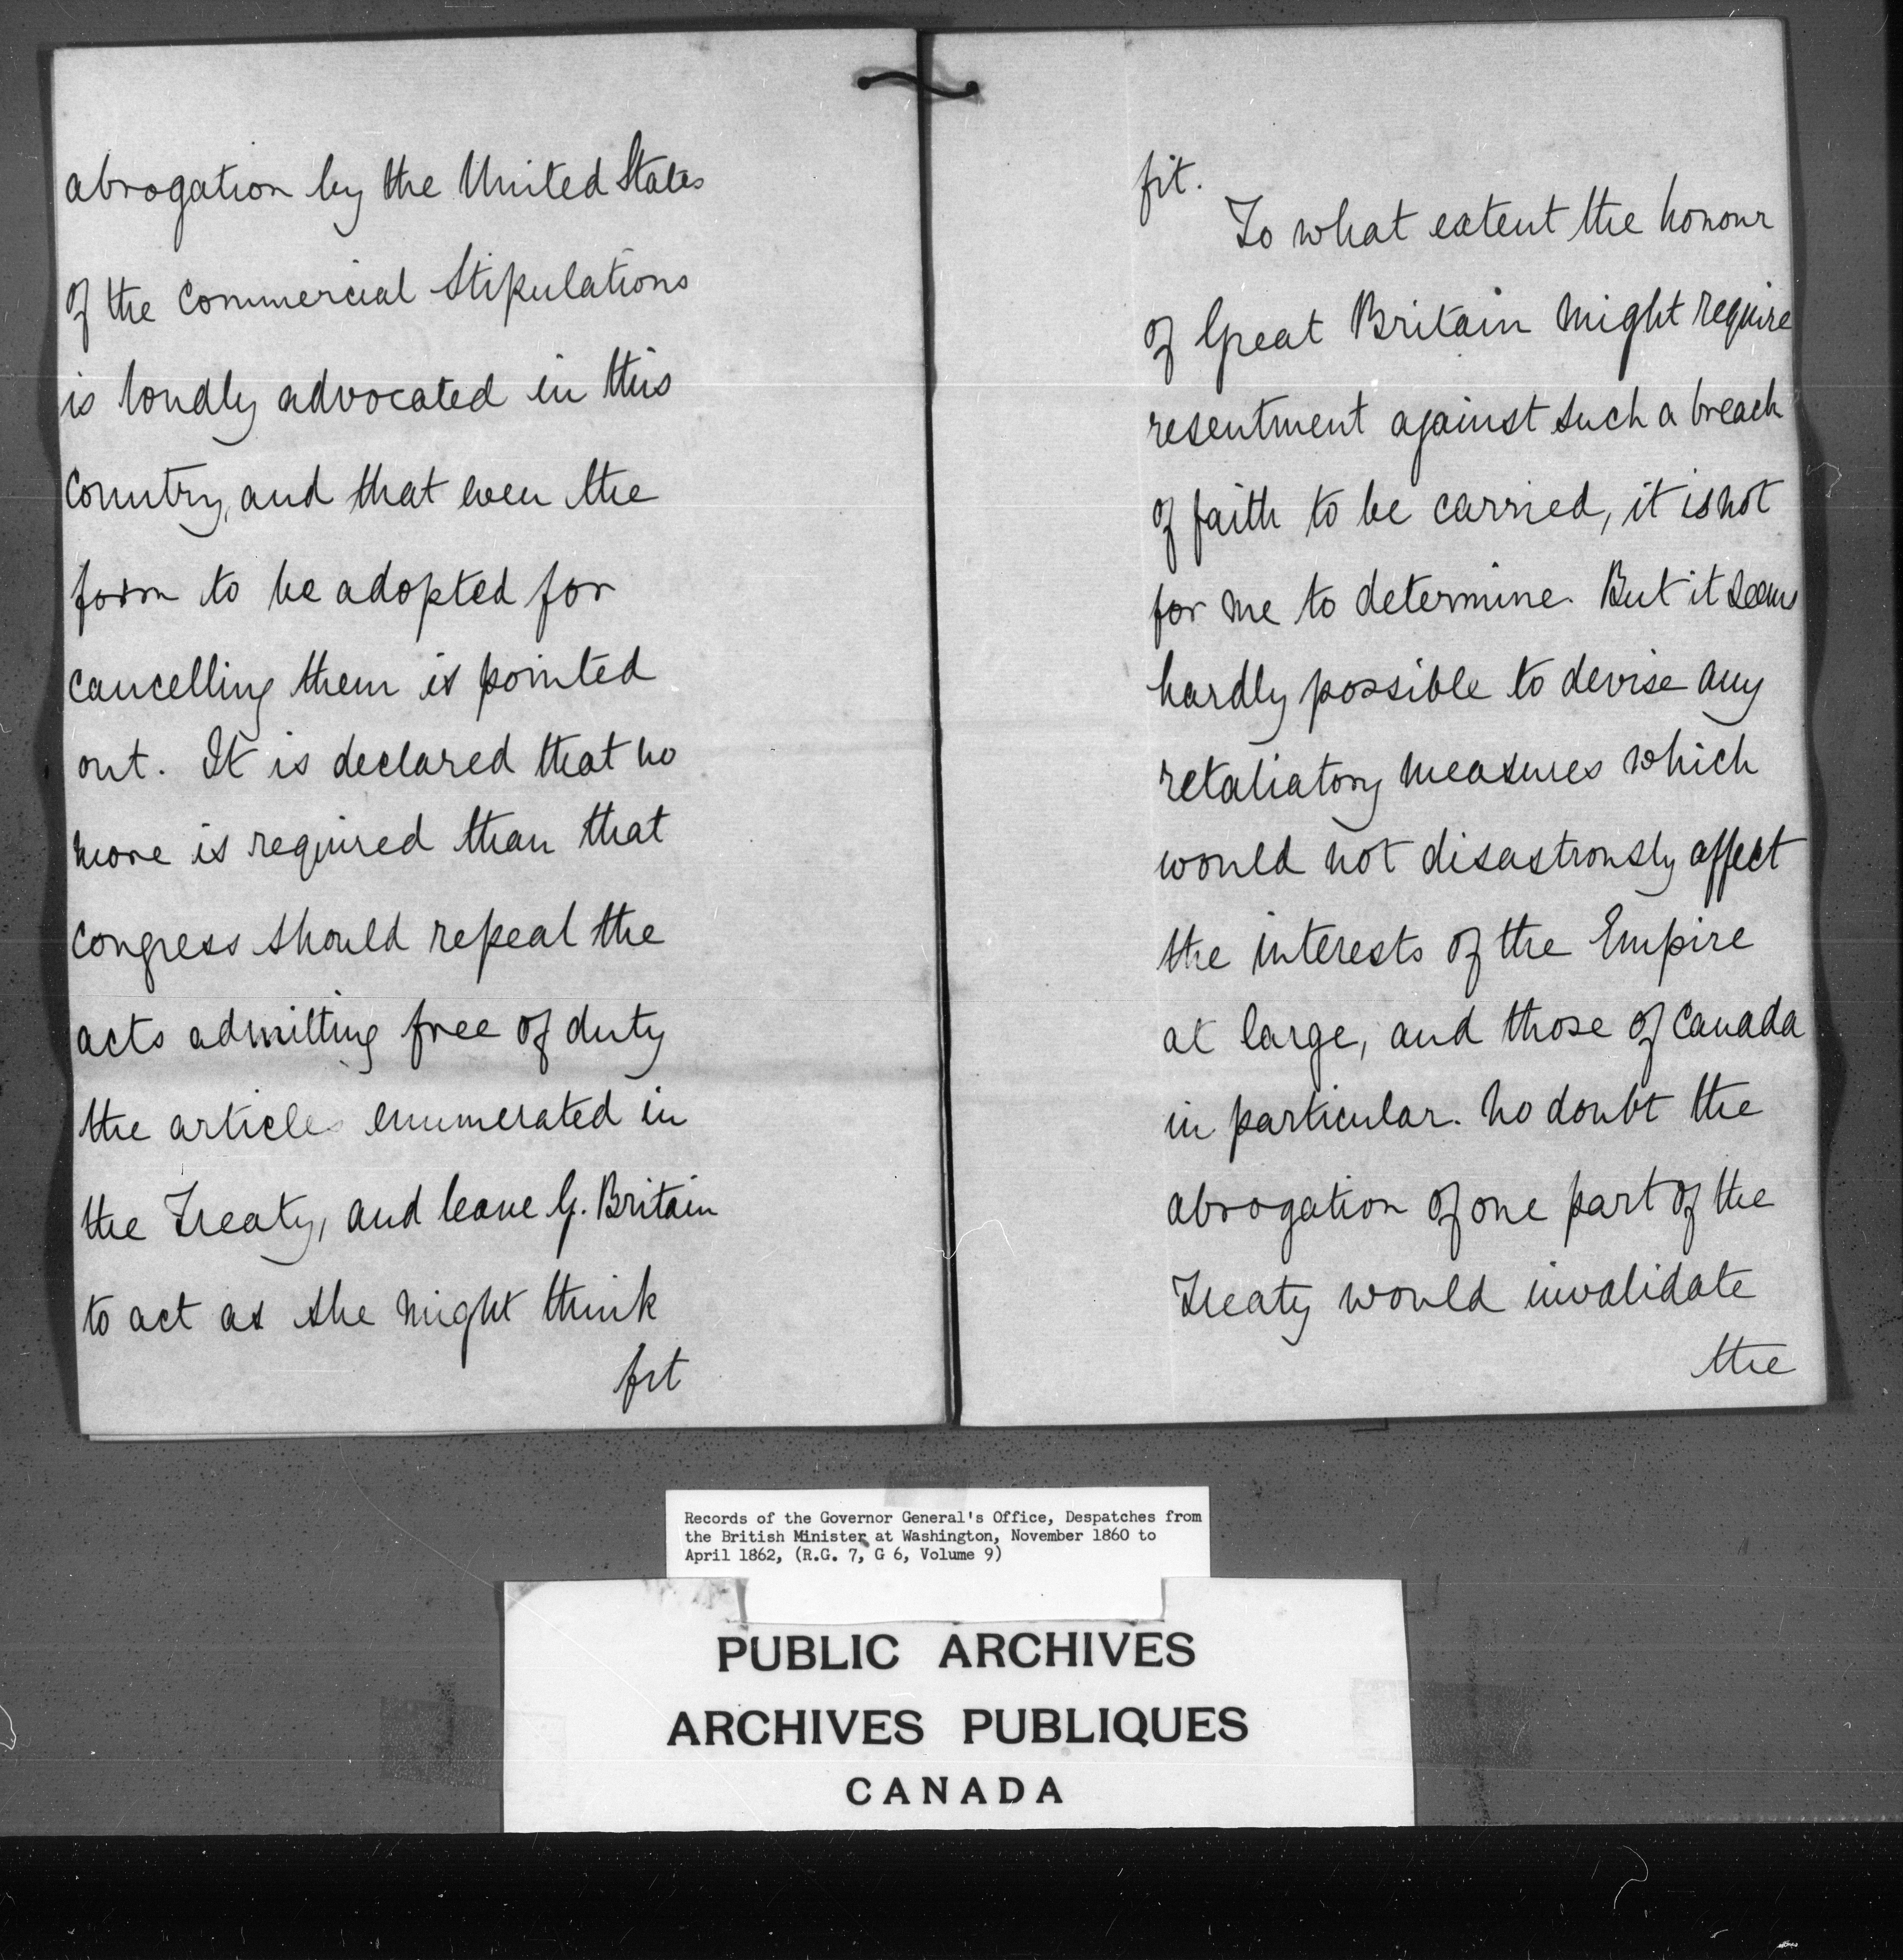 abrogation by the United States
of the Commercial Stipulations
is loudly advocated in this
Country, and that even the
form to be adopted for
cancelling them is pointed
out. It is declared that no
more is required than that
Congress should repeal the
acts admitting free of duty
the articles enumerated in
the Treaty, and leave G. Britain
to act as she might think
fit
fit.
To what extent the honour
of Great Britain might require
resentment against such a breach
of faith to be carried, it is not
for me to determine. But it seems
hardly possible to devise any
retaliatory measures which
would not disastrously affect
the interests of the Empire
at large, and those of Canada
in particular. No doubt the
abrogation of one part of the
Treaty would invalidate
the
Records of the Governor General's Office, Despatches from
the British Minister at Washington, November 1860 to
April 1862, (R.G. 7, G 6, Volume 9)
PUBLIC ARCHIVES
ARCHIVES PUBLIQUES
CANADA